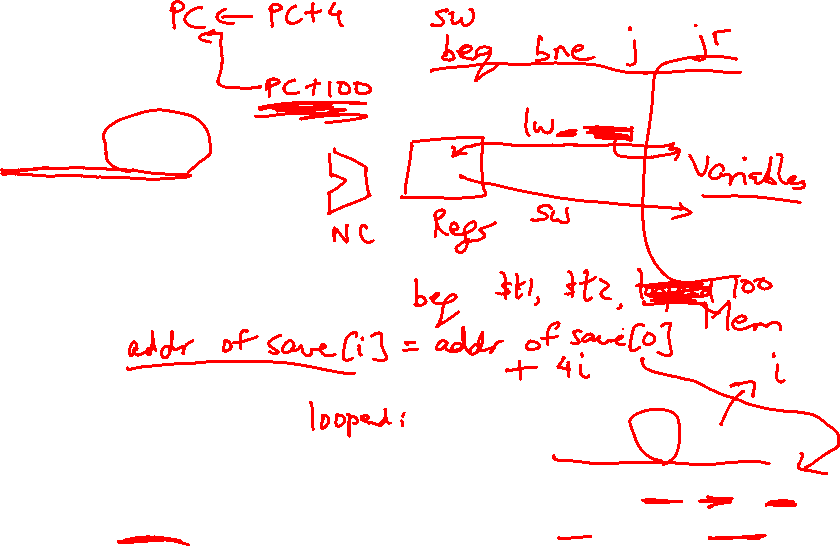 PC ← PC+4
sw
beq bne j jr
PC+100
lw
Variables
NC
Regs
sw
beq $t1, $t2, 100
Mem
addr of save[i] = addr of save[0]
+ 4i
i
loopend: